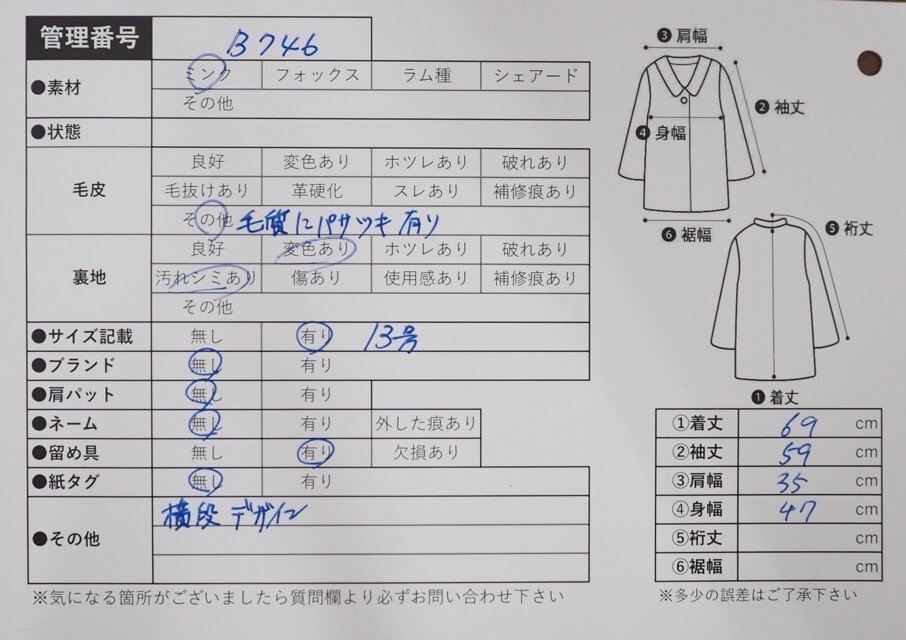 管理番号 B746
●素材 ミンク フォックス ラム種 シェアード
その他
●状態
毛皮 良好 変色あり ホツレあり 破れあり
毛抜けあり 革硬化 スレあり 補修痕あり
その他 毛質にパサツキ有り
裏地 良好 変色あり ホツレあり 破れあり
汚れシミあり 傷あり 使用感あり 補修痕あり
その他
●サイズ記載 無し 有り 13号
●ブランド 無し 有り
●肩パット 無し 有り
●ネーム 無し 有り 外した痕あり
●留め具 無し 有り 欠損あり
●紙タグ 無し 有り
●その他 横段デザイン
※気になる箇所がございましたら質問欄より必ずお問い合わせ下さい
❸肩幅
❷袖丈
❹身幅
❻裾幅
❺裄丈
❶着丈
①着丈 69 cm
②袖丈 59 cm
③肩幅 35 cm
④身幅 47 cm
⑤裄丈 cm
⑥裾幅 cm
※多少の誤差はご了承下さい